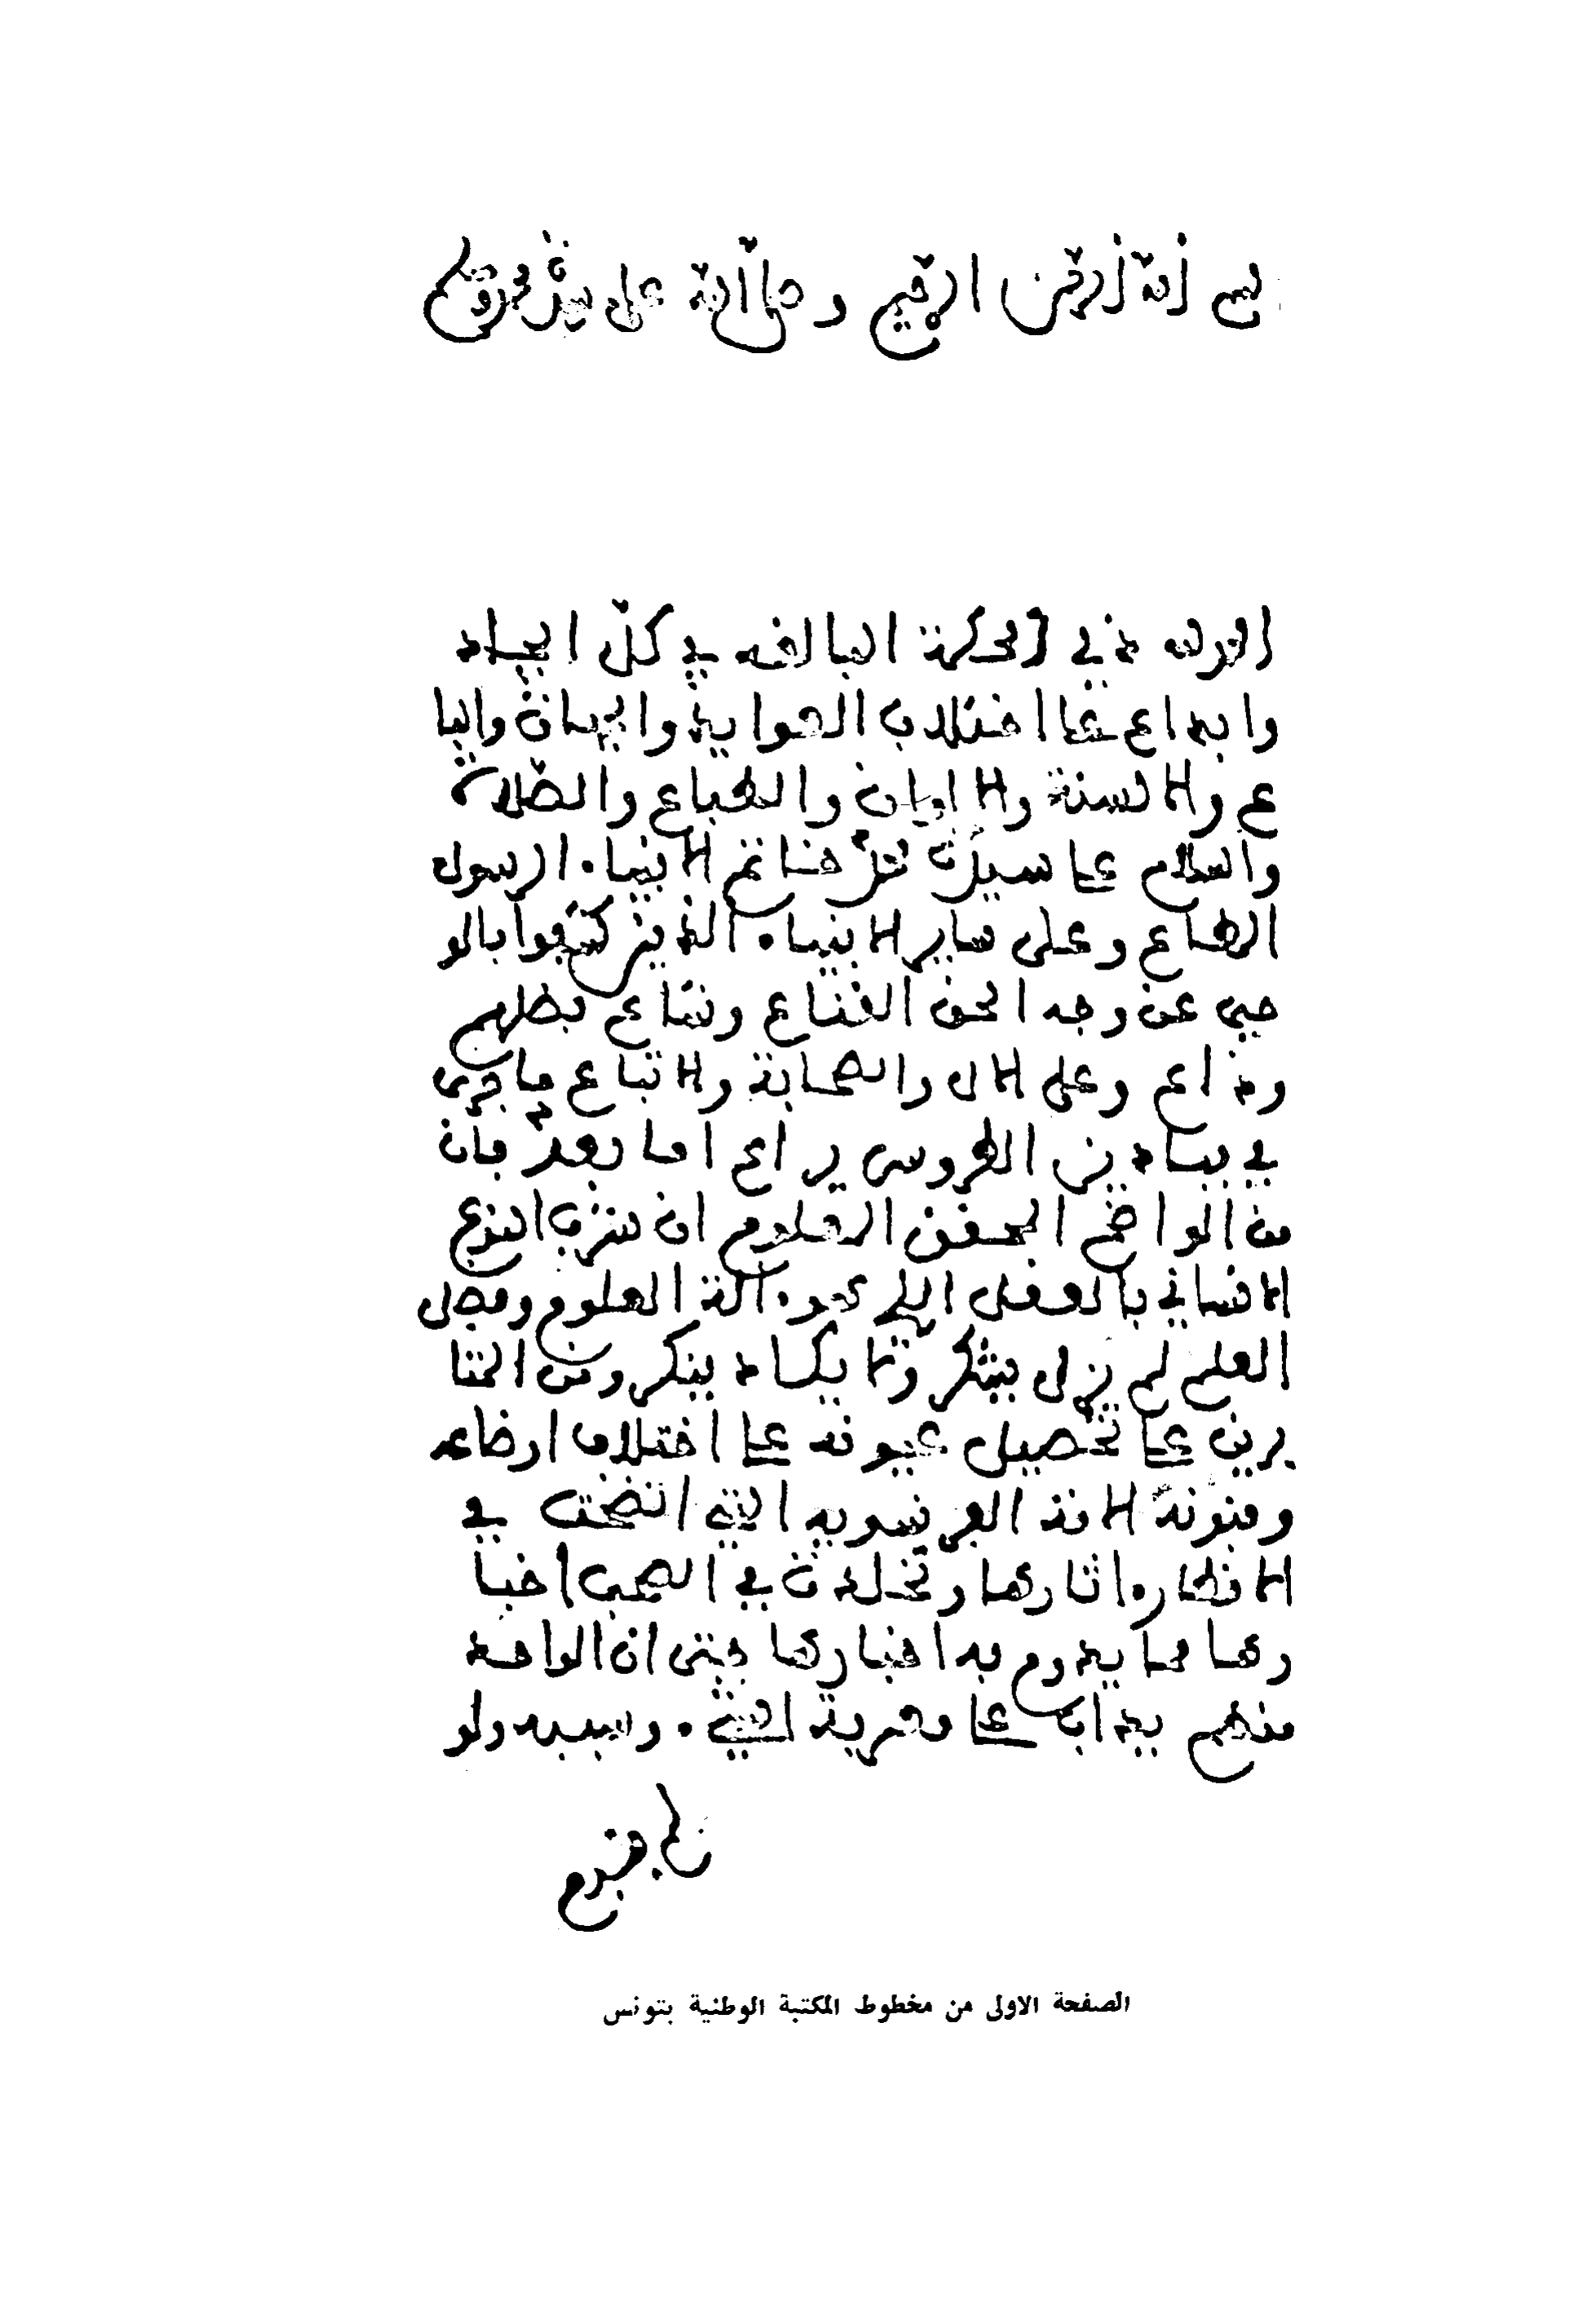 بسم الله الرحمن الرحيم وصلى الله على سيدنا محمد وسلم
الحمد لله ذي الحكمة البالغة في كل ايجاد
وابداع على اختلاف الهوايد والجهات والبقا
ع والالسنة والالوان والطباع والصلاة
والسلام على سيدنا محمد خاتم الانبياء الرسول
المطاع وعلى ساير الانبياء الذين كشفوا بالو
حي عن وجه الحق القناع وشاع فضلهم
وذاع وعلى الال والصحابة والاتباع ما جرى
في ميادين الطروس يراع اما بعد فان
من الواضح المحقق المعلوم ان شرف النوع
الانساني بالعقل الذي هو الة العلوم وفضل
العلم لم يزل يشكر ولا يكاد ينكر ومن المثا
برين على تحصيل عيونه على اختلاف اوضاعه
وفنونه الامة الفرنسوية التي اتضحت في
الاقطار اثارها وتخلدت في الصحف اخبا
رها مما يدوم به اخبارها حتى ان الواحد
منهم يداب على معرفة الشيء وسببه ولو
الصفحة الاولى من مخطوط المكتبة الوطنية بتونس